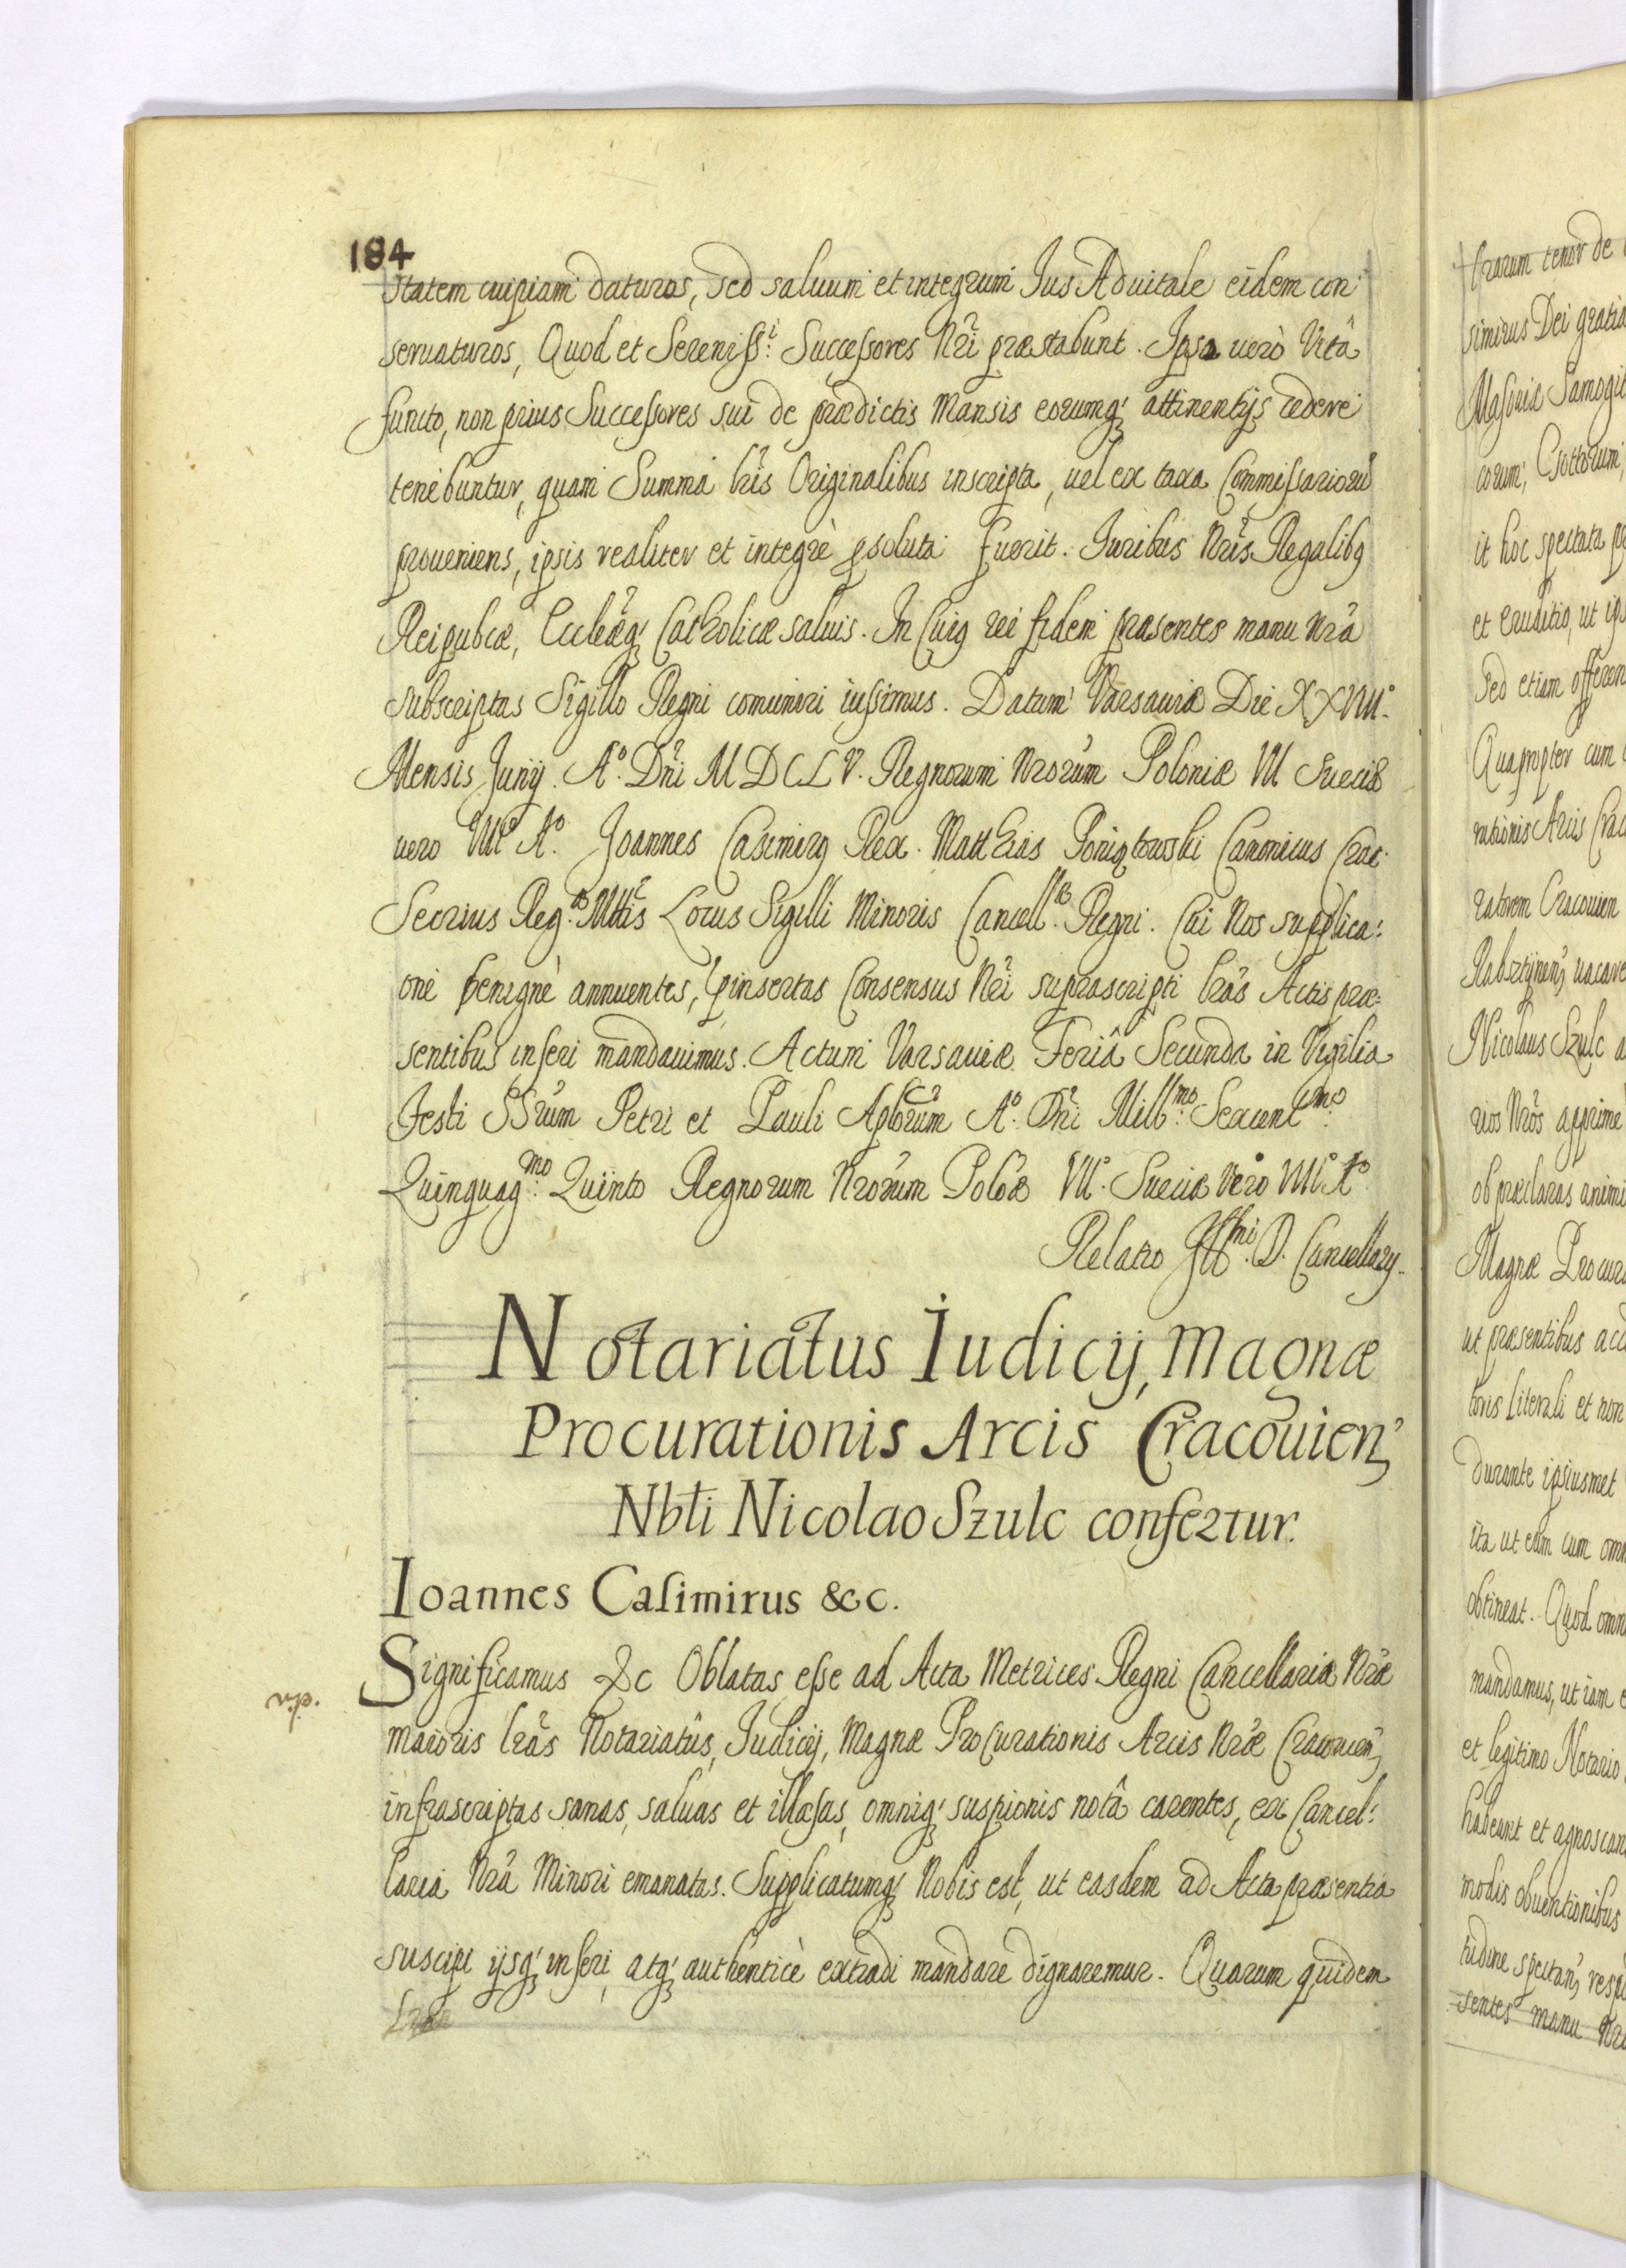 184
statem cuipiam daturos, sed saluum et integrum Jus Aduitale eidem con
seruaturos, Quod et Sereniss:i Successores Nri præstabunt. Ipsa uerò Vitâ
functo, non prius Successores sui de prædictis Mansis eorumq; attinentijs cedere
tenebuntur, quam Summa lris Originalibus inscripta, uel ex taxa Commissarioru
proueniens, ipsis realiter et integrè psoluta fuerit. Juribus Nris Regalibq
Reipublcæ, Eccleæq; Catholicæ saluis. In Cuiq rei fidem præsentes manu nra
subscriptas Sigillo Regni comuniri iussimus. Datum Varsauiæ Die XXVIII.
Mensis Junij. Ao. Dni MDCLV. Regnorum Nrorum Poloniæ VII Sueciæ
uero VIIIo Ao. Joannes Casimirq Rex. Matthias Poniatowski Canonicus Crac:
Secrius Reg:æ Mttis Locus Sigilli Minoris Cancell:æ Regni. Cui Nos supplica:
oni benignè annuentes, pinsertas Consensus Nri suprascripti lras Actis præ:
sentibus inseri mandauimus. Actum Varsauiæ Feriâ Secunda in Vigilia
Festi SSrum Petri et Pauli Aplorum Ao. Dni Mill:mo Sexcent:mo
Quinquag:mo Quinto Regnorum Nrorum Polôæ VII. Sueciæ Vero VIIIo Ao.
Relatio Ill:mi D. Cancellarij.
Notariatus Iudicij, Magnæ
Procurationis Arcis Cracouien;
Nbli Nicolao Szulc confertur.
Ioannes Casimirus &c.
Significamus &c Oblatas esse ad Acta Metrices Regni Cancellariæ Nræ
maioris lras Notariatûs, Judicij, Magnæ Procurationis Arcis Nræ Cracouien;
infrascriptas sanas, saluas et illæsas, omniq; suspionis notâ carentes, ex Cancel:
laria Nra Minori emanatas. Supplicatumq; Nobis est, ut easdem ad Acta præsentia
suscipi ijsq; inseri, atq; authenticè extradi mandare dignaremur. Quarum quidem
trarum tenor de
simirus Dei gratia
Masouiæ Samogit
corum, Gottorum,
it hoc spectata pr
et eruditio, ut ips
sed etiam offeren
Quapropter cum
rationis Arcis Crac
ratorem Cracouien
Rabsztynen; uacare
Nicolaus Szulc a
rios Nros apprime
ob præclaras animi
Magnæ Procura
ut præsentibus acc
toris literali et non
durante ipsiusmet
ita ut eam cum omn
obtineat. Quod omn
mandamus, ut iam e
et legitimo Notario
habeant et agnoscan
modis obuentionibus
tudine spectan; respe
sentes manu Nra